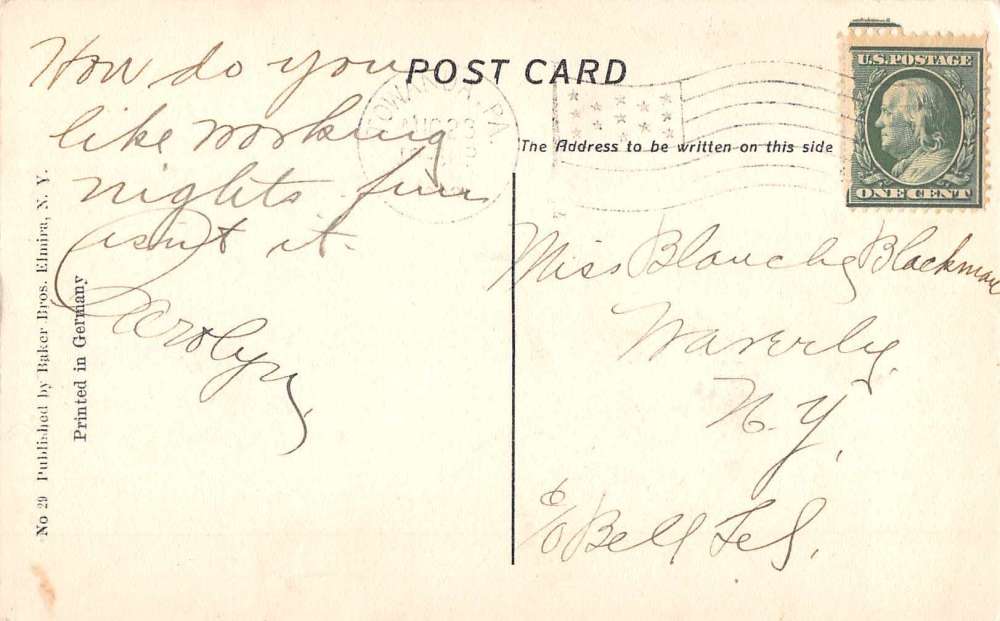 How do you
like working
nights fun
isn't it.
Carolyn
POST CARD
TOWANDA, PA.
AUG 23
The Address to be written on this side
U.S. POSTAGE
ONE CENT
Miss Blanche Blackman
Waverly
N.Y.
c/o Bell Tel.
No 29 Published by Baker Bros. Elmira, N. Y.
Printed in Germany